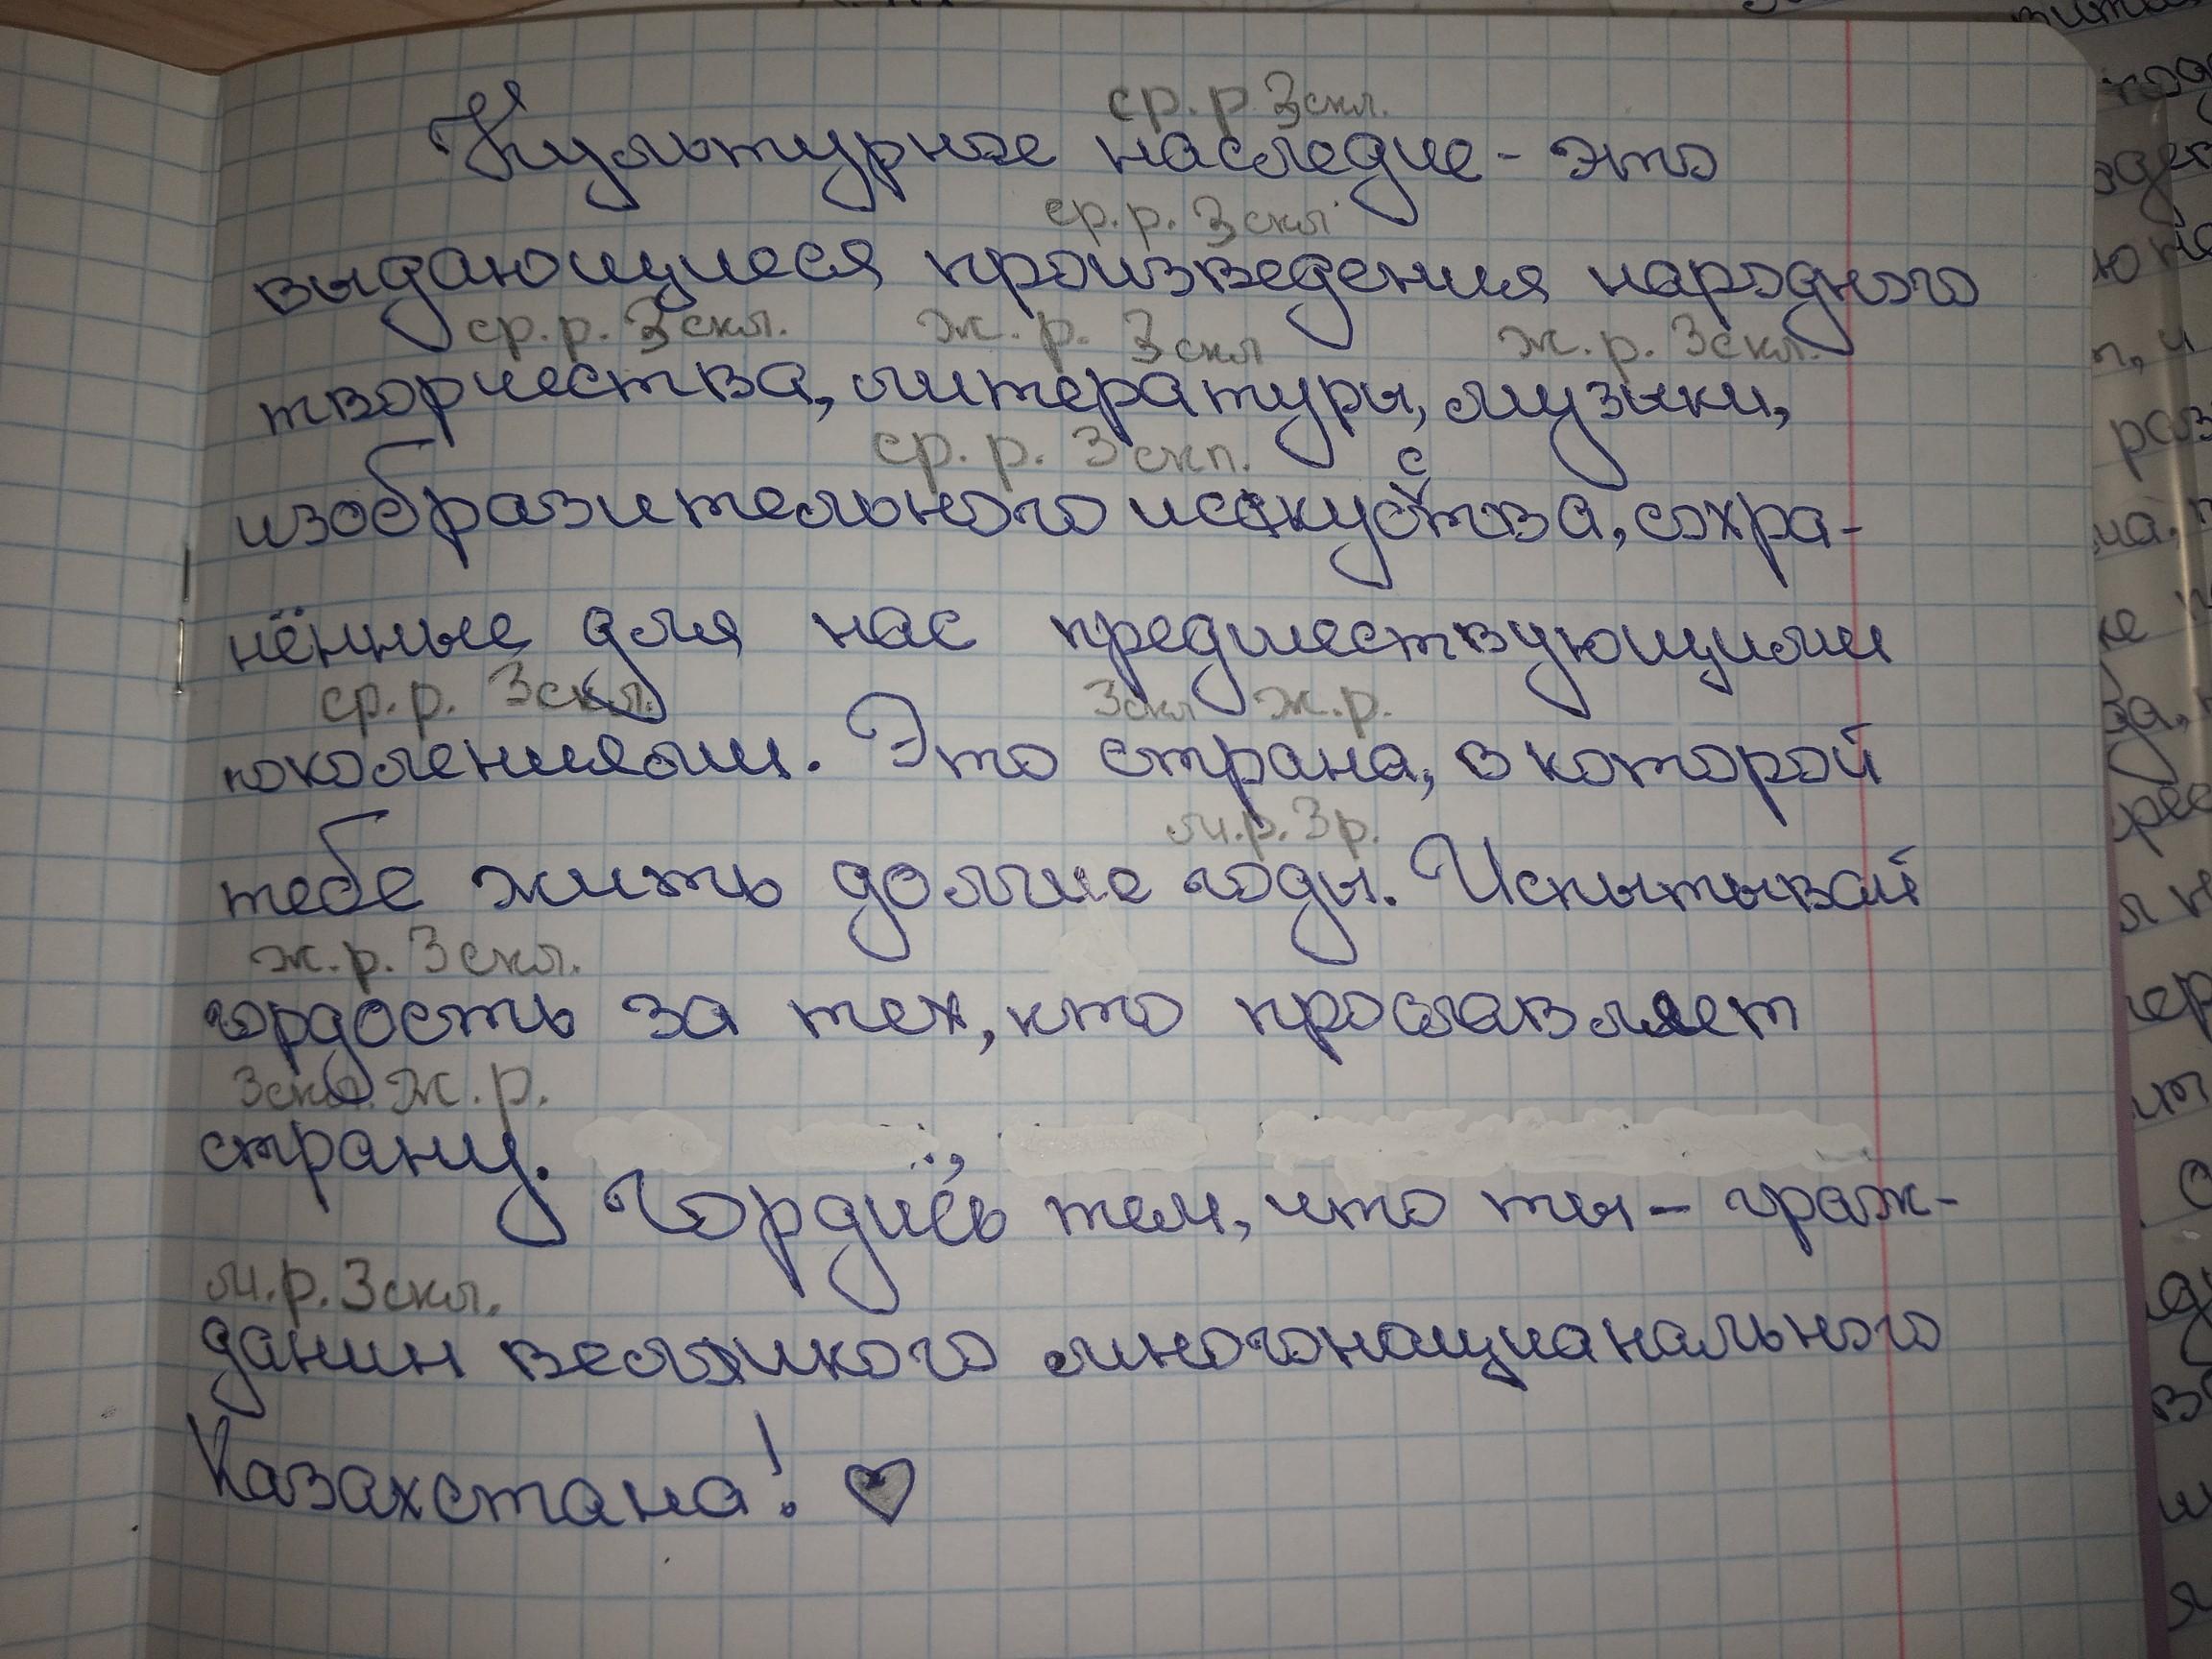 ср.р 3скл.
Культурное наследие - это
ср.р. 3скл.
выдающиеся произведения народного
ср.р. 3скл. ж.р. 3скл ж.р. 3скл.
творчества, литературы, музыки,
ср.р. 3скл. с
изобразительного искуства, сохра-
нённые для нас предшествующими
ср.р. 3скл. 3скл ж.р.
поколениями. Это страна, в которой
м.р. 3р.
тебе жить долгие годы. Испытывай
ж.р. 3скл.
гордость за тех, кто прославляет
3скл. ж.р.
страну.
Гордись тем, что ты - граж-
м.р. 3скл.
данин великого многонационального
Казахстана!